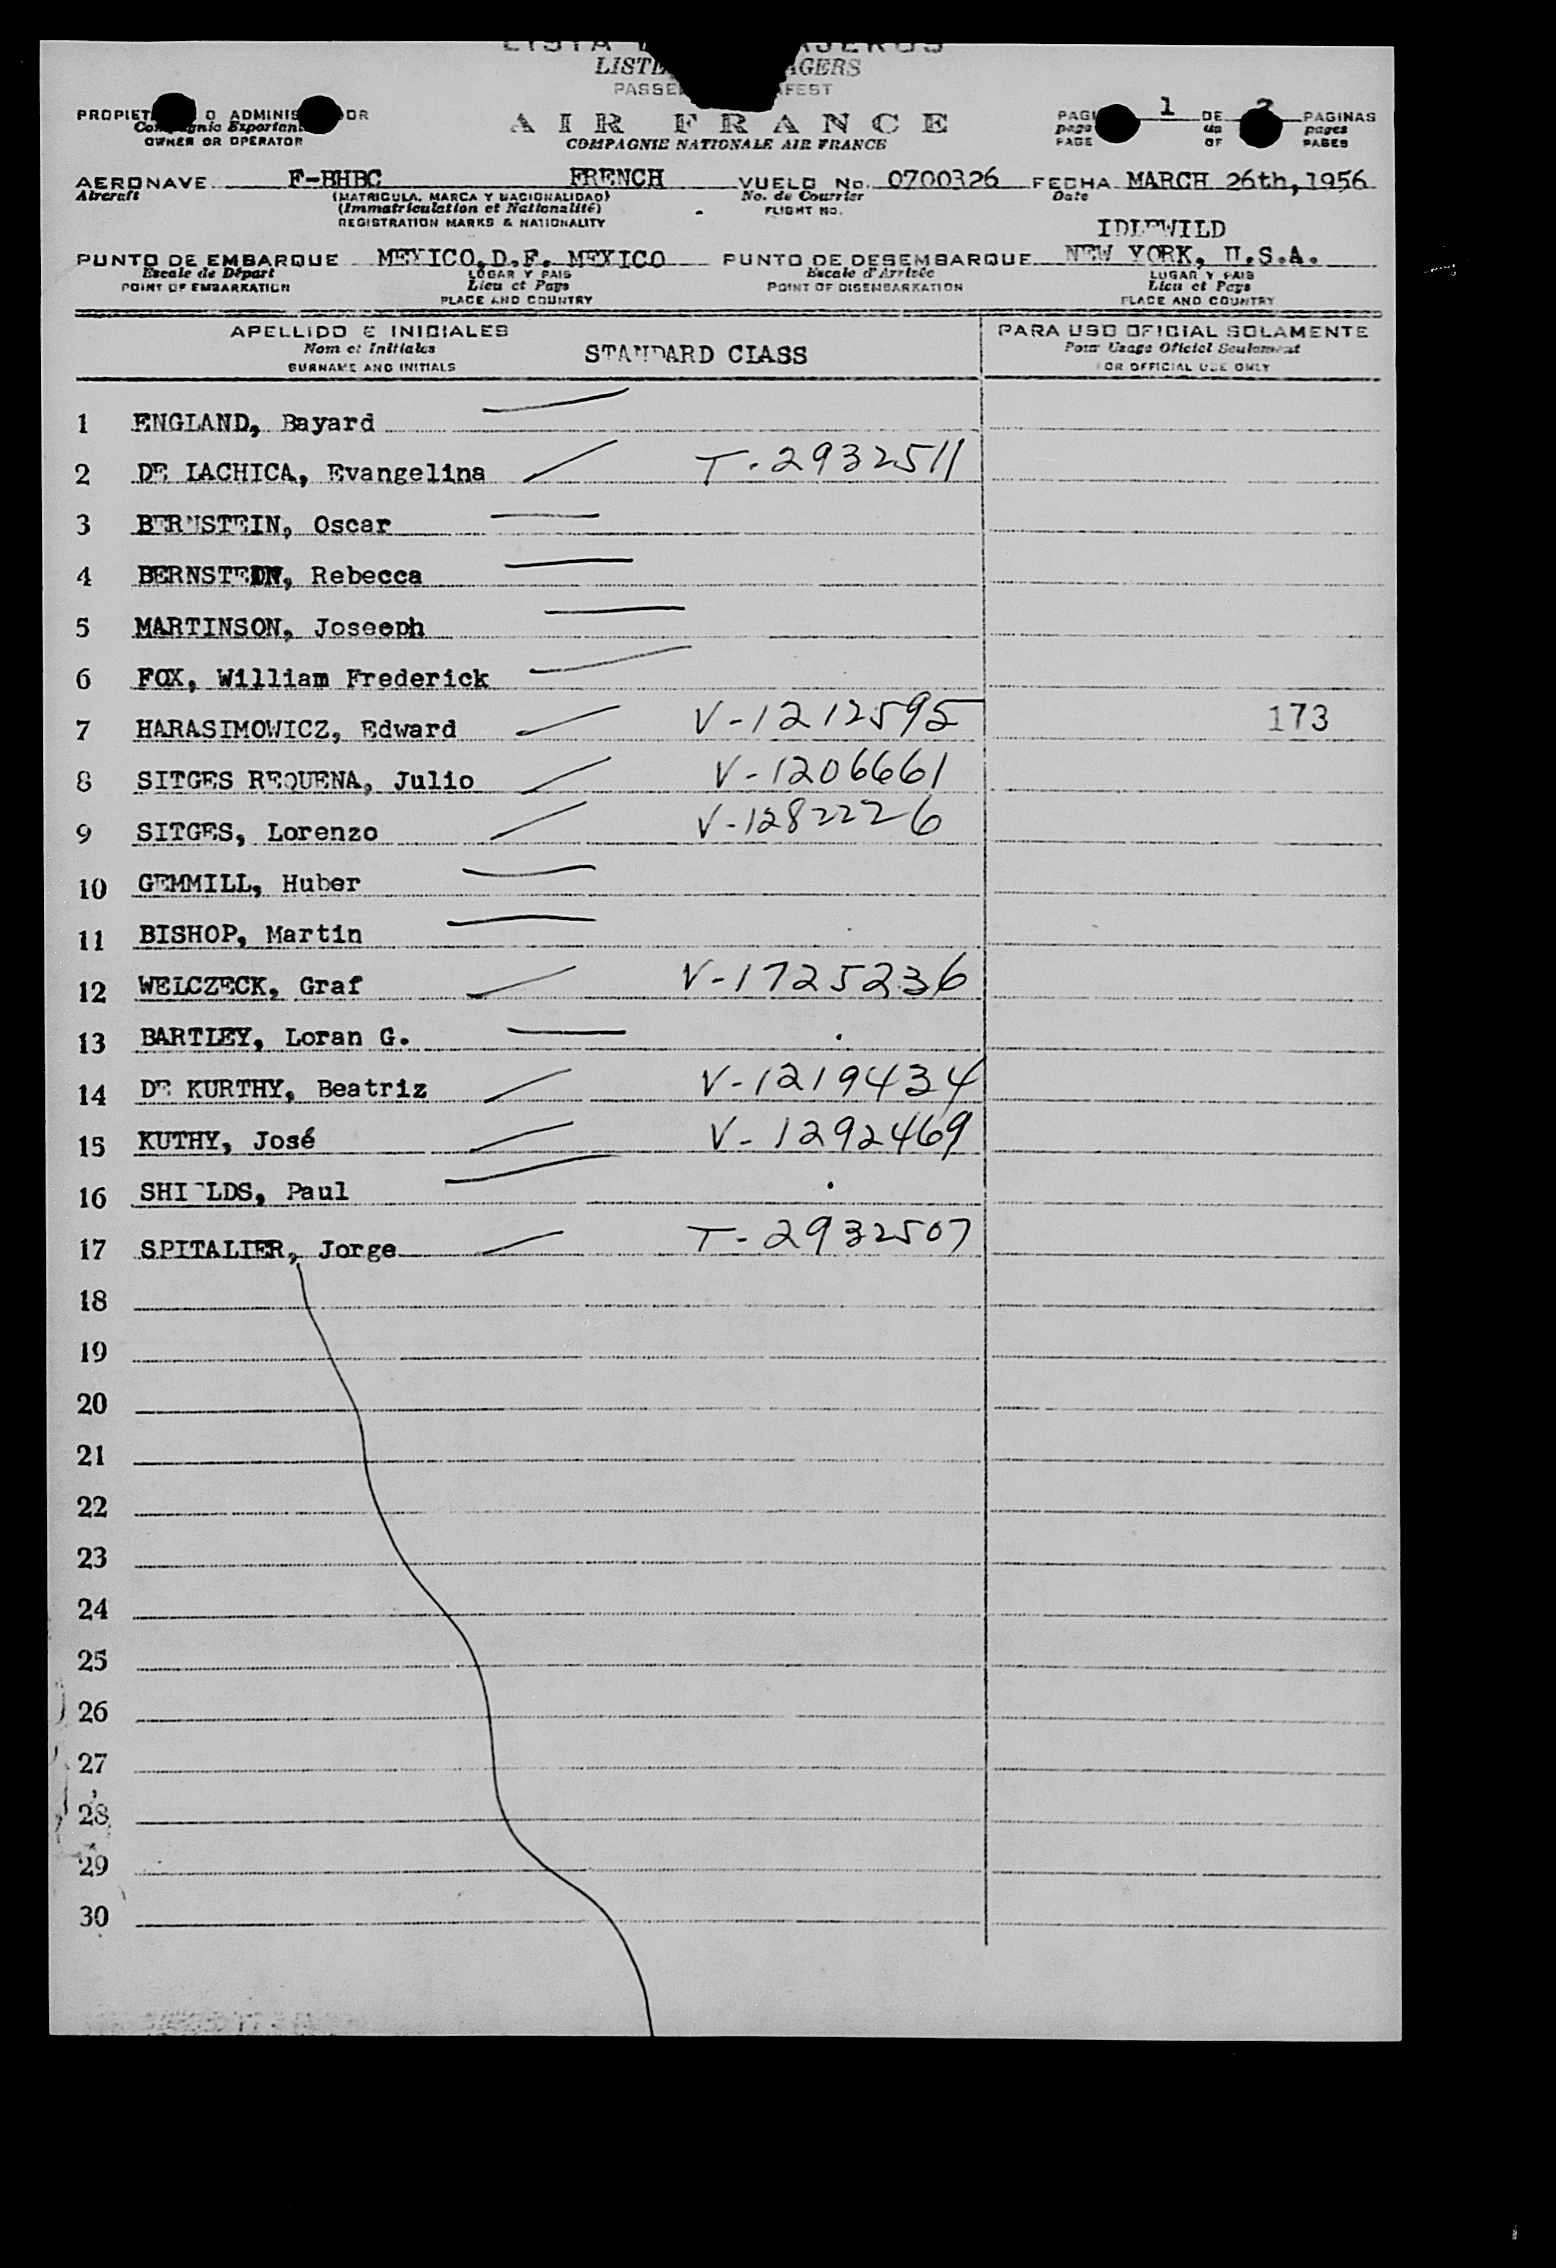 LISTA PASAJEROS
LISTE PASSAGERS
PASSENGER MANIFEST
PROPIETARIO O ADMINISTRADOR
Compagnie Exportante
OWNER OR OPERATOR
AIR FRANCE
COMPAGNIE NATIONALE AIR FRANCE
PAGINA 1 DE 2 PAGINAS
page un pages
PAGE OF PAGES
AERONAVE F-BHBC FRENCH VUELO No. 0700326 FECHA MARCH 26th, 1956
Aircraft (MATRICULA, MARCA Y NACIONALIDAD) No. de Courrier Date
(Immatriculation et Nationalité) FLIGHT NO.
REGISTRATION MARKS & NATIONALITY
IDLEWILD
PUNTO DE EMBARQUE MEXICO, D.F. MEXICO PUNTO DE DESEMBARQUE NEW YORK, U.S.A.
Escale de Départ LUGAR Y PAIS Escale d'Arrivée LUGAR Y PAIS
POINT OF EMBARKATION Lieu et Pays POINT OF DISEMBARKATION Lieu et Pays
PLACE AND COUNTRY PLACE AND COUNTRY
APELLIDO E INICIALES PARA USO OFICIAL SOLAMENTE
Nom et Initiales STANDARD CLASS Pour Usage Oficiel Seulement
SURNAME AND INITIALS FOR OFFICIAL USE ONLY
1 ENGLAND, Bayard
2 DE LACHICA, Evangelina T-2932511
3 BERNSTEIN, Oscar
4 BERNSTEIN, Rebecca
5 MARTINSON, Joseeph
6 FOX, William Frederick
7 HARASIMOWICZ, Edward V-1212595 173
8 SITGES REQUENA, Julio V-1206661
9 SITGES, Lorenzo V-1282226
10 GEMMILL, Huber
11 BISHOP, Martin
12 WELCZECK, Graf V-1725236
13 BARTLEY, Loran G.
14 DE KURTHY, Beatriz V-1219434
15 KUTHY, José V-1292469
16 SHIELDS, Paul
17 SPITALIER, Jorge T-2932507
18
19
20
21
22
23
24
25
26
27
28
29
30